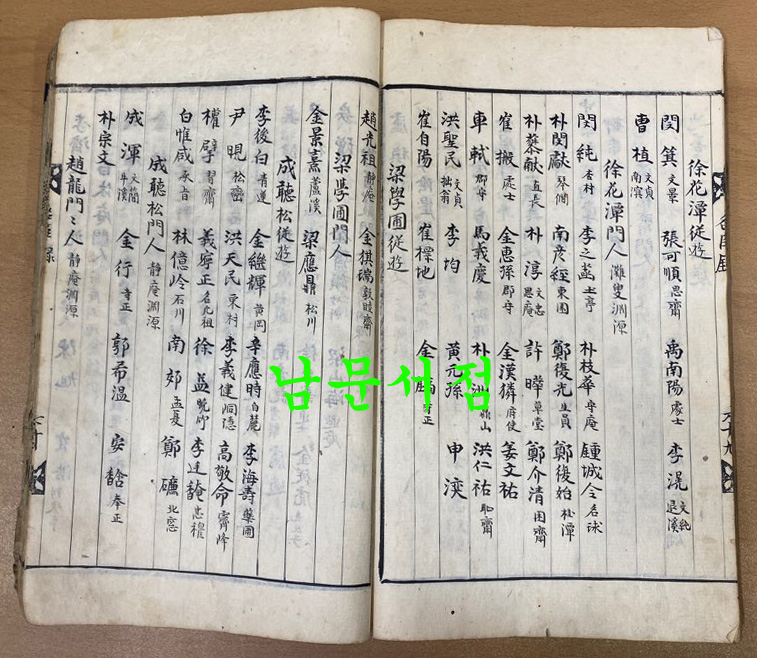 徐花潭從遊
閔箕 文景 張可順 思齋 禹南陽 處士 李滉 文純 退溪
曹植 文貞 南溟
徐花潭門人 灘叟淵源
閔純 杏村 李之菡 土亭 朴枝華 守庵 鍾城令 名球
朴閔獻 琴僩 南彦經 東園 鄭復光 生員 鄭復始 桂潭
朴藜獻 直長 朴淳 文忠 思庵 許曄 草堂 鄭介清 困齋
崔櫬 處士 金惠孫 郡守 金漢獜 府使 姜文祐
車軾 郡守 馬義慶 朴洲 洪仁祐 耻齋
洪聖民 文貞 拙翁 李均 黃元孫 申湙
崔自陽 崔櫟地 金 寺正
梁學圃從遊
趙光祖 靜庵 金棋瑞 敦岐齋
梁學圃門人
金景憙 蘆溪 梁應鼎 松川
成聽松從遊
李後白 青蓮 金繼輝 黃岡 辛應時 白麓 李海壽 藥圃
尹晛 松巒 洪天民 東村 李義健 洞隱 高敬命 霽峰
權擘 習齋 義寧正 名允祖 徐益 晩竹 李廷馣 忠穆
白惟咸 承旨 林億岭 石川 南郊 孟夏 鄭礦 北窓
成聽松門人 靜庵淵源
成渾 文簡 牛溪 金行 寺正 郭希溫 安馠 奉正
朴宗文
趙龍門之人 靜庵淵源
남문서점